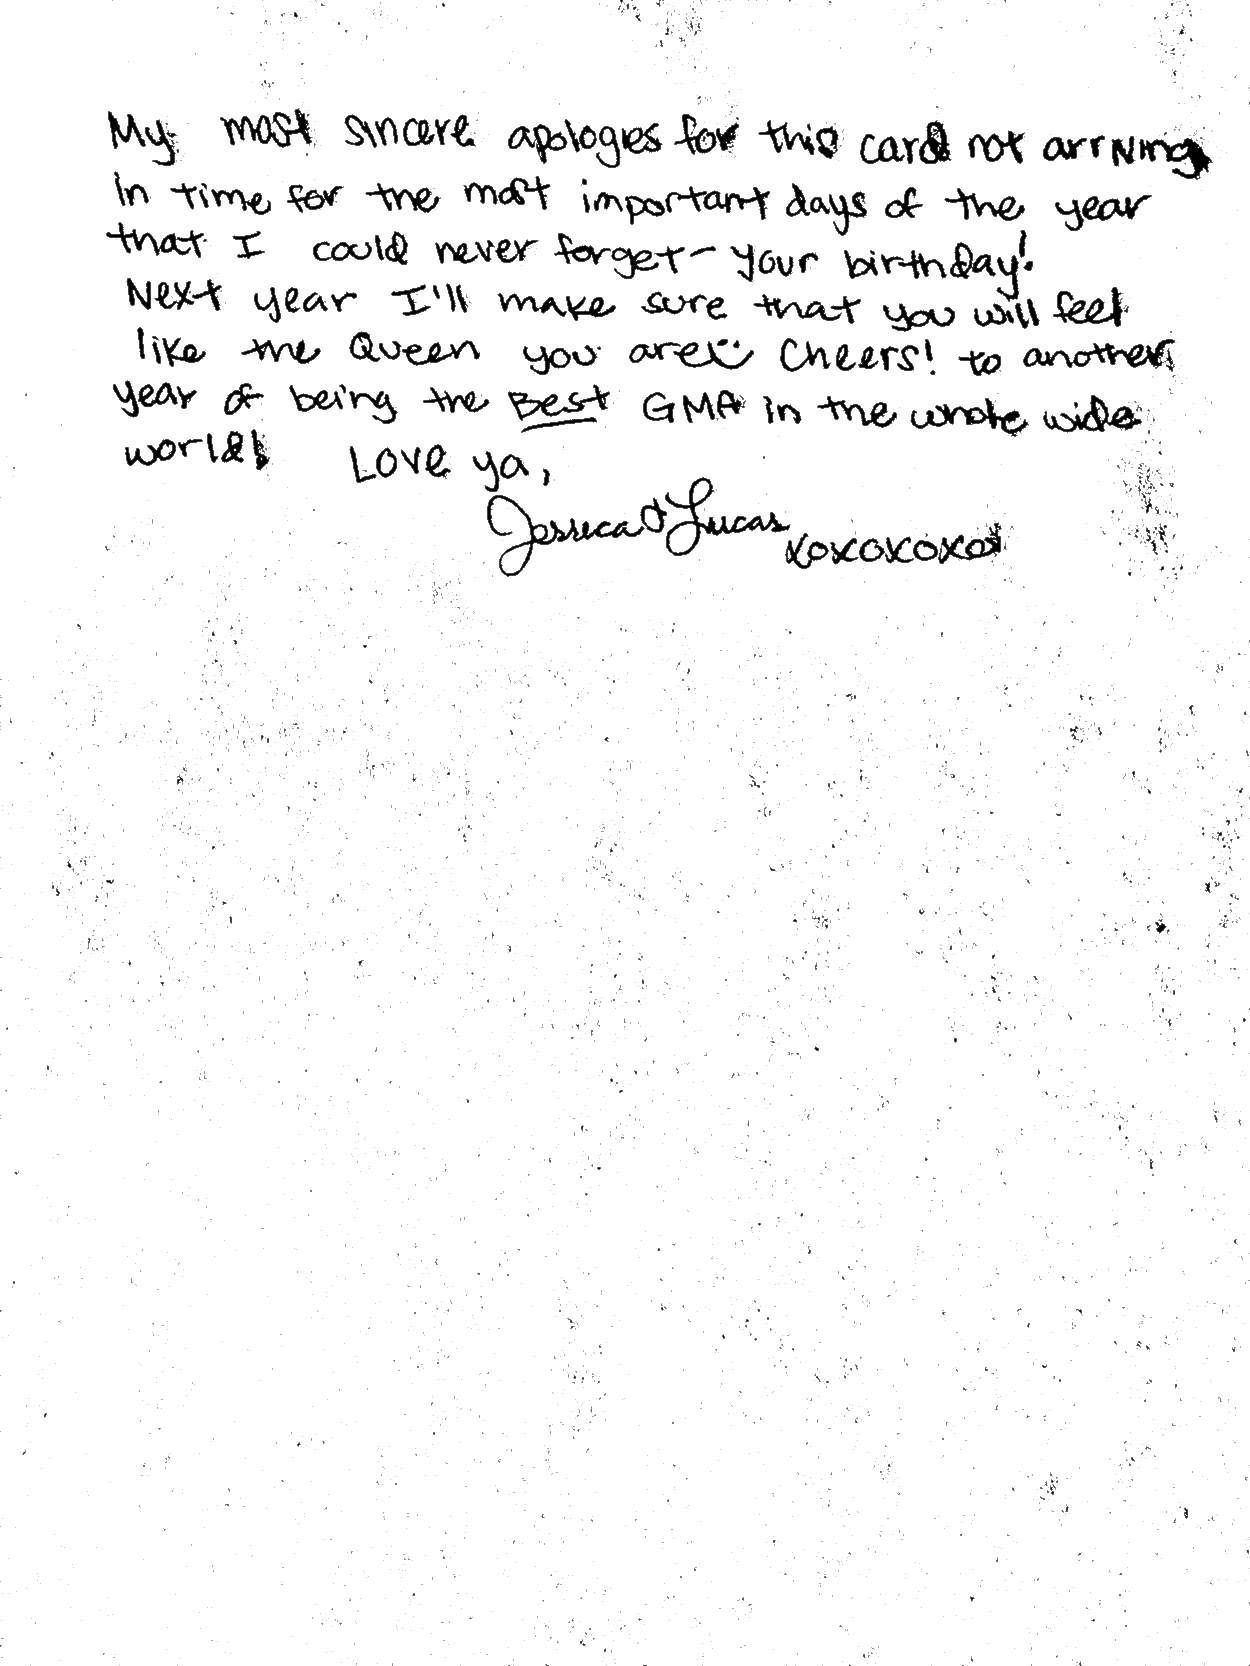 My most sincere apologies for this card not arriving
in time for the most important days of the year
that I could never forget - your birthday!
Next year I'll make sure that you will feel
like the Queen you are :) Cheers! to another
year of being the Best GMA in the whole wide
world! Love ya,
Jessica & Lucas
xoxoxoxo